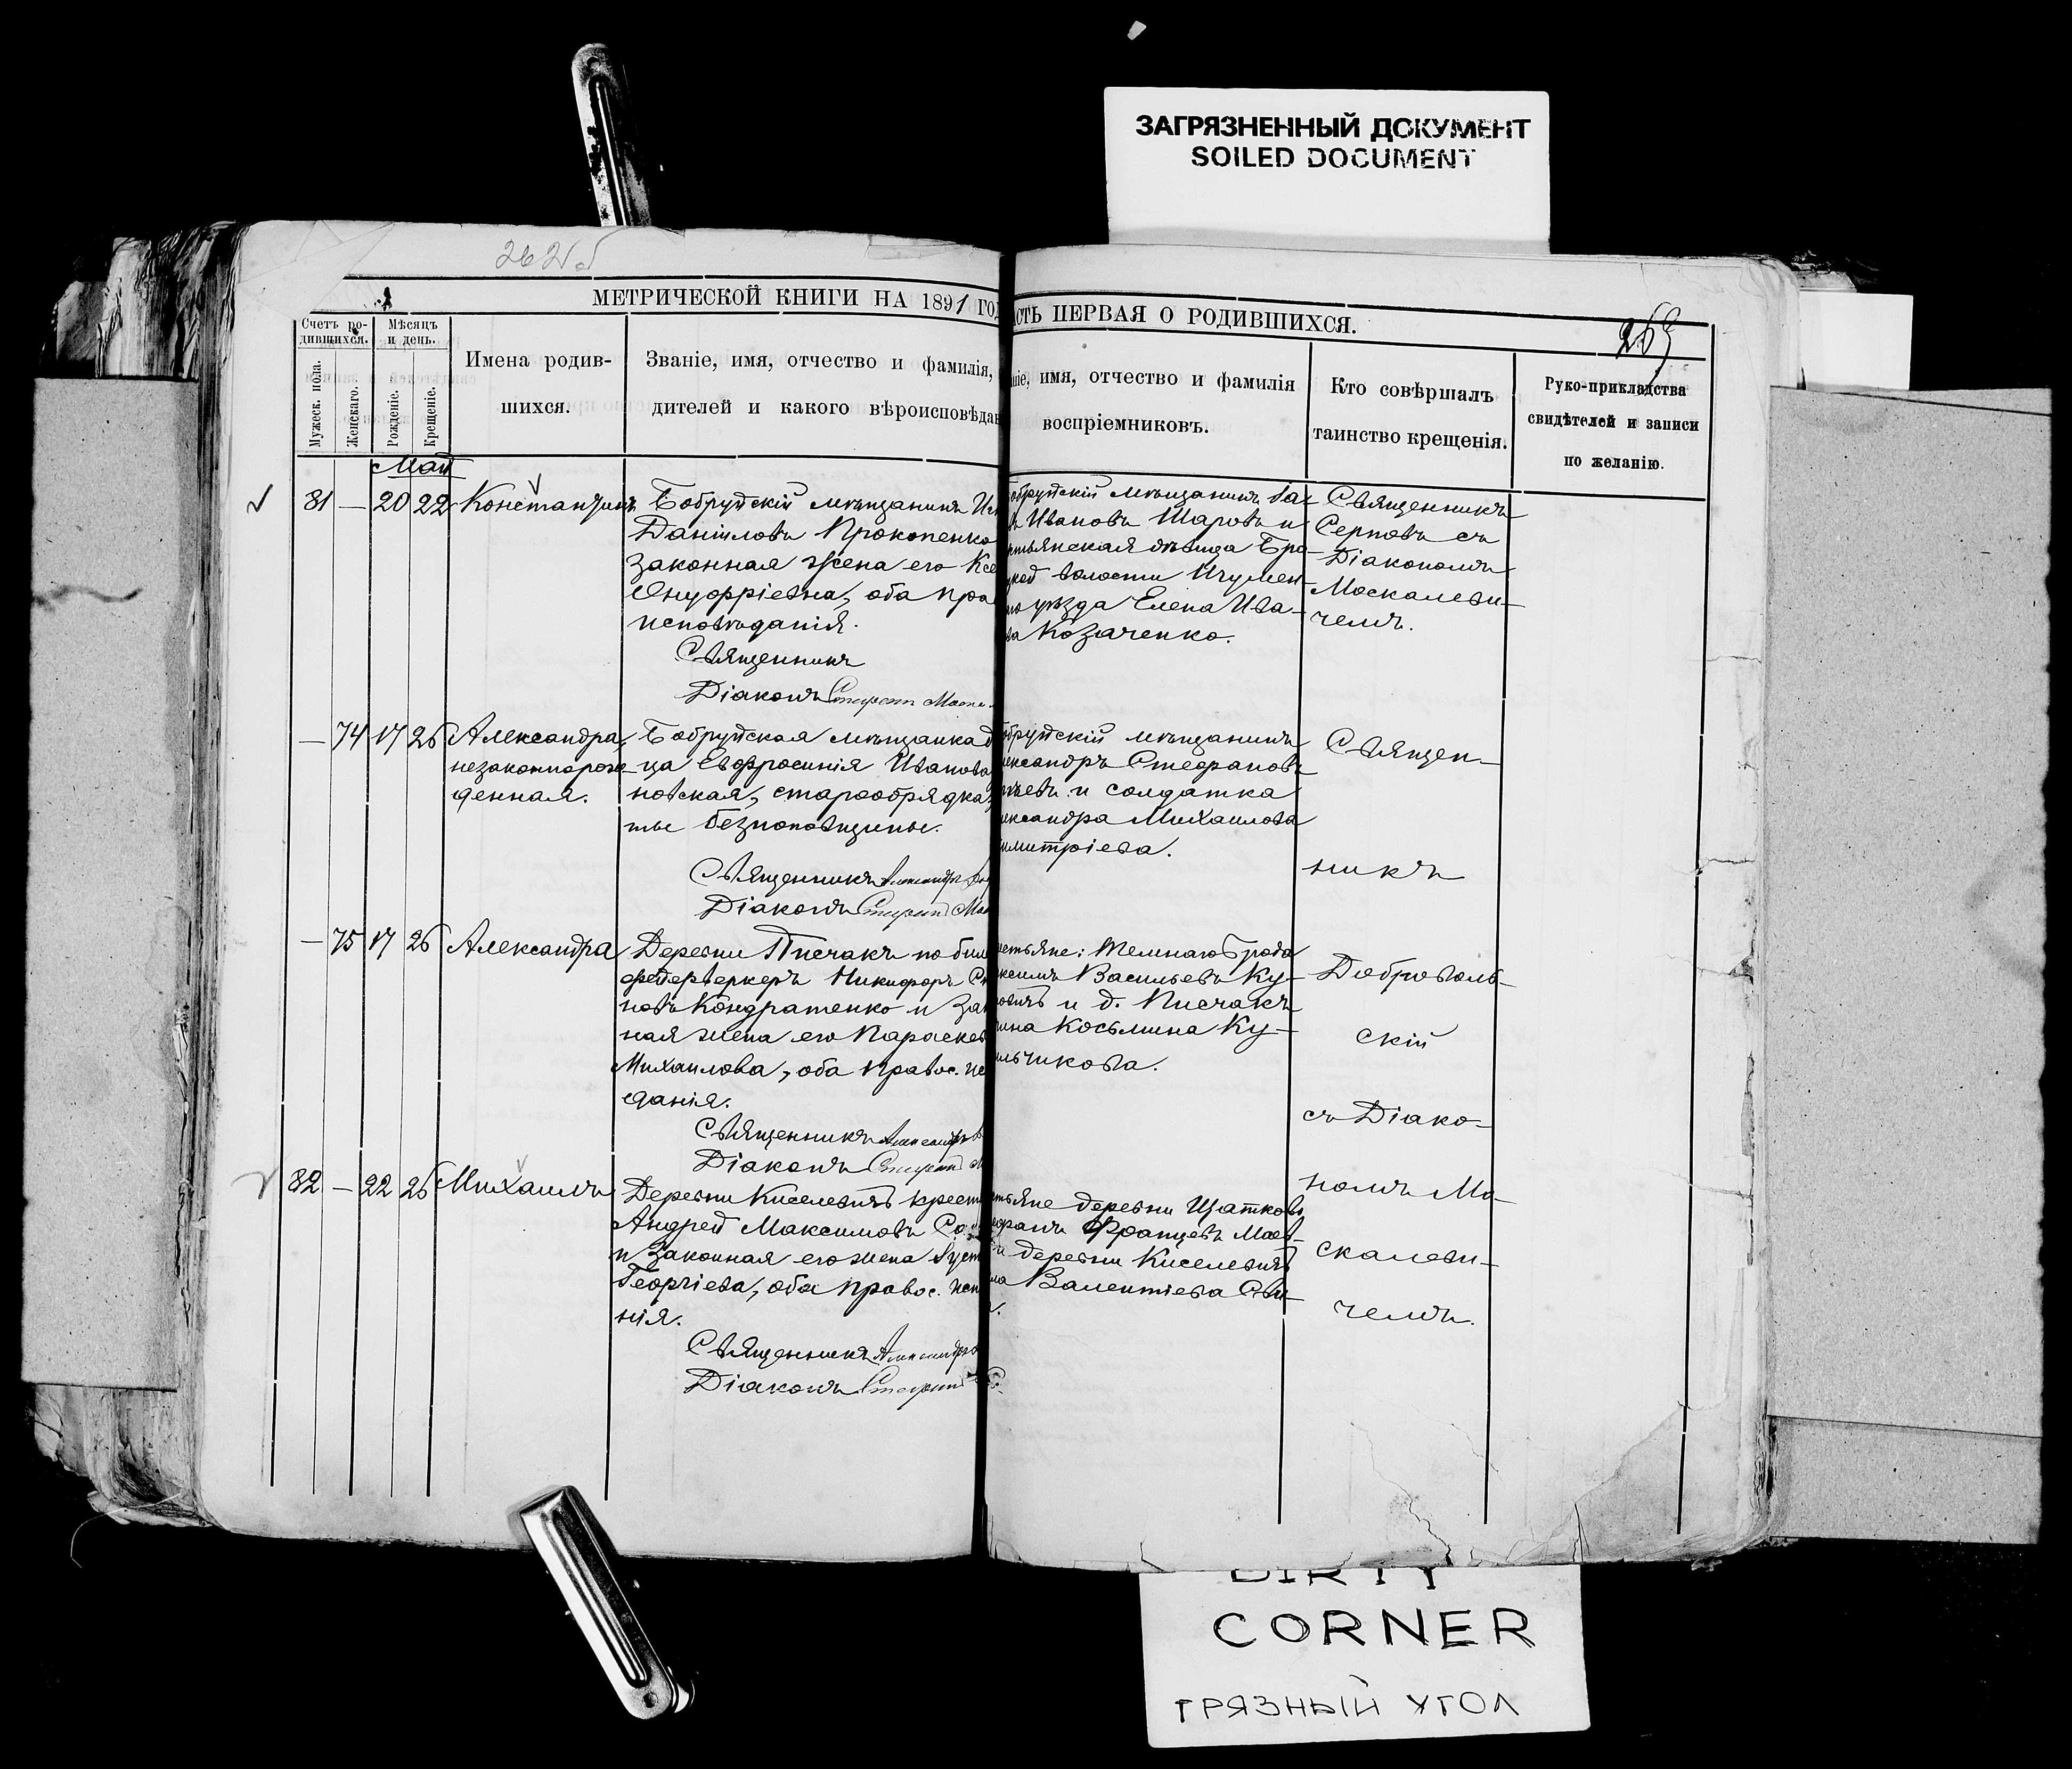 ЗАГРЯЗНЕННЫЙ ДОКУМЕНТ
SOILED DOCUMENT
МЕТРИЧЕСКОЙ КНИГИ НА 1891 ГОД
СТЬ ПЕРВАЯ О РОДИВШИХСЯ.
263
Счетъ ро-
дившихся.
Мужеск. пола.
Женскаго.
Мѣсяцъ
и день.
Рожденіе.
Крещеніе.
Имена родив-
шихся.
Званіе, имя, отчество и фамилія,
дителей и какого вѣроисповѣдан
ніе, имя, отчество и фамилія
воспріемниковъ.
Кто совѣршалъ
таинство крещенія.
Руко-прикладства
свидѣтелей и записи
по желанію.
Май
81 — 20 22 Константинъ
Бобруйскій мѣщанинъ
Даніиловъ Прокопенко
законная жена его Ксе
Онуфріевна, оба пра
исповѣданія.
Священникъ
Діаконъ Стефанъ
обруйскій мѣщанинъ
Ивановъ Шаровъ и
стьянская дѣвица Бро-
волости Игумен-
уѣзда Елена Ива-
ва Козаченко.
Священникъ
Серповъ съ
Діакономъ
Москалеви-
чемъ.
— 74 17 26 Александра,
незаконнорож-
денная.
Бобруйская мѣщанка д
ца Евфросинія Иванова
новская, старообрядка,
безпоповщины.
Священникъ Александръ
Діаконъ Стефанъ
обруйскій мѣщанинъ
лександръ Стефановъ
и солдатка
лександра Михаилова
имитріева.
— 75 17 26 Александра
Деревни Писчакъ по
фейерверкеръ Никифоръ
новъ Кондратенко и зак
ная жена его Параскев
Михаилова, оба правос. ис
данія.
Священникъ Александръ
Діаконъ Стефанъ
стьяне:
ксимъ Васильевъ Ку-
и д. Писчакъ
Косьмина Ку-
льчикова.
82 — 22 26 Михаилъ
Деревни Киселевичъ крест
Андрей Максимовъ
и законная его жена Іуст
Георгіева, оба правос. исп
нія.
Священникъ Александръ
Діаконъ Стефанъ
стьяне деревни Щатково
Францевъ
деревни Киселевичъ
Валентіева
Священ-
никъ
Доброволь-
скій
съ Діако-
номъ Мо-
скалеви-
чемъ.
DIRTY
CORNER
ГРЯЗНЫЙ УГОЛ